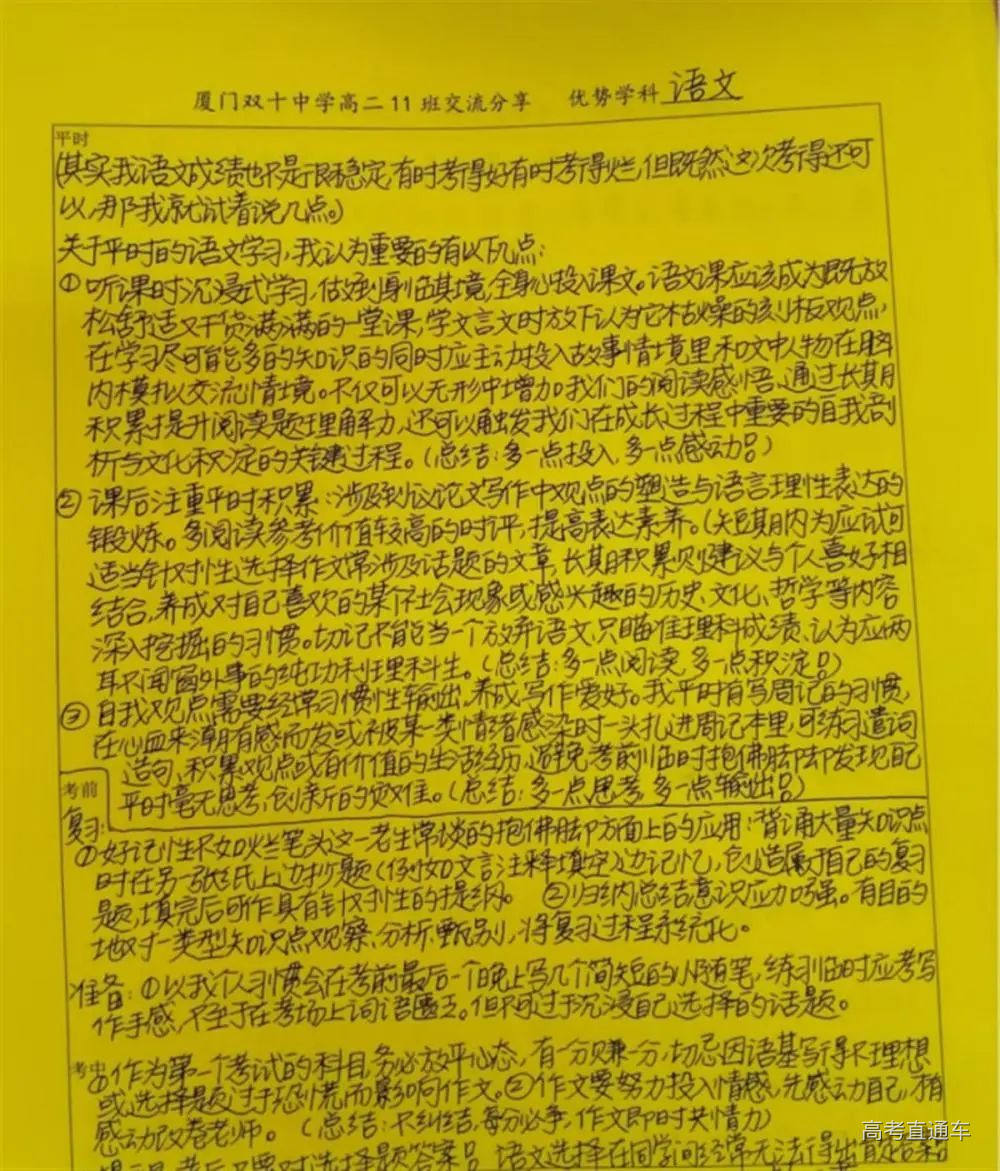 厦门双十中学高二11班交流分享 优势学科 语文
平时
(其实我语文成绩也不是很稳定,有时考得好有时考得烂,但既然这次考得还可
以,那我就试着说几点。)
关于平时的语文学习,我认为重要的有以下几点:
①听课时沉浸式学习,做到身临其境,全身心投入课文。语文课应该成为既放
松舒适又干货满满的一堂课,学文言文时放下认为它枯燥的刻板观点,
在学习尽可能多的知识的同时应主动投入故事情境里和文中人物在脑
内模拟交流情境。不仅可以无形中增加我们的阅读感悟、通过长期
积累提升阅读题理解力,还可以触发我们在成长过程中重要的自我剖
析与文化积淀的关键过程。(总结:多一点投入,多一点感动)
②课后注重平时积累:涉及到议论文写作中观点的塑造与语言理性表达的
锻炼。多阅读参考价值较高的时评,提高表达素养。(短期内为应试可
适当针对性选择作文常涉及话题的文章,长期积累则建议与个人喜好相
结合,养成对自己喜欢的某个社会现象或感兴趣的历史、文化、哲学等内容
深入挖掘的习惯。切记不能当一个放弃语文,只瞄准理科成绩、认为应两
耳不闻窗外事的纯功利理科生。(总结:多一点阅读,多一点积淀)
③自我观点需要经常习惯性输出,养成写作爱好。我平时有写周记的习惯,
在心血来潮有感而发或被某一类情绪感染时一头扎进周记本里,可练习遣词
造句,积累观点或有价值的生活经历,避免考前临时抱佛脚却发现自己
平时毫无思考,创新的艰难。(总结:多一点思考,多一点输出)
考前
复习:
①好记性不如烂笔头这一老生常谈的抱佛脚方面上的应用:背诵大量知识点
时在另一张纸上边抄题(例如文言注释填空)边记忆,创造属于自己的复习
题,填完后可作具有针对性的提纲。 ②归纳总结意识应加强。有目的
地对一类型知识点观察、分析、甄别,将复习过程系统化。
准备:①以我个人习惯会在考前最后一个晚上写几个简短的小随笔,练习临时应考写
作手感,不至于在考场上词语匮乏。但不过于沉浸自己选择的话题。
考中
①作为第一个考试的科目,务必放平心态,有一分赚一分,切忌因语基写得不理想
或选择题过于恐慌而影响作文。②作文要努力投入情感,先感动自己,才有
感动改卷老师。(总结:不纠结,每分必争,作文即时共情力)
高考直通车